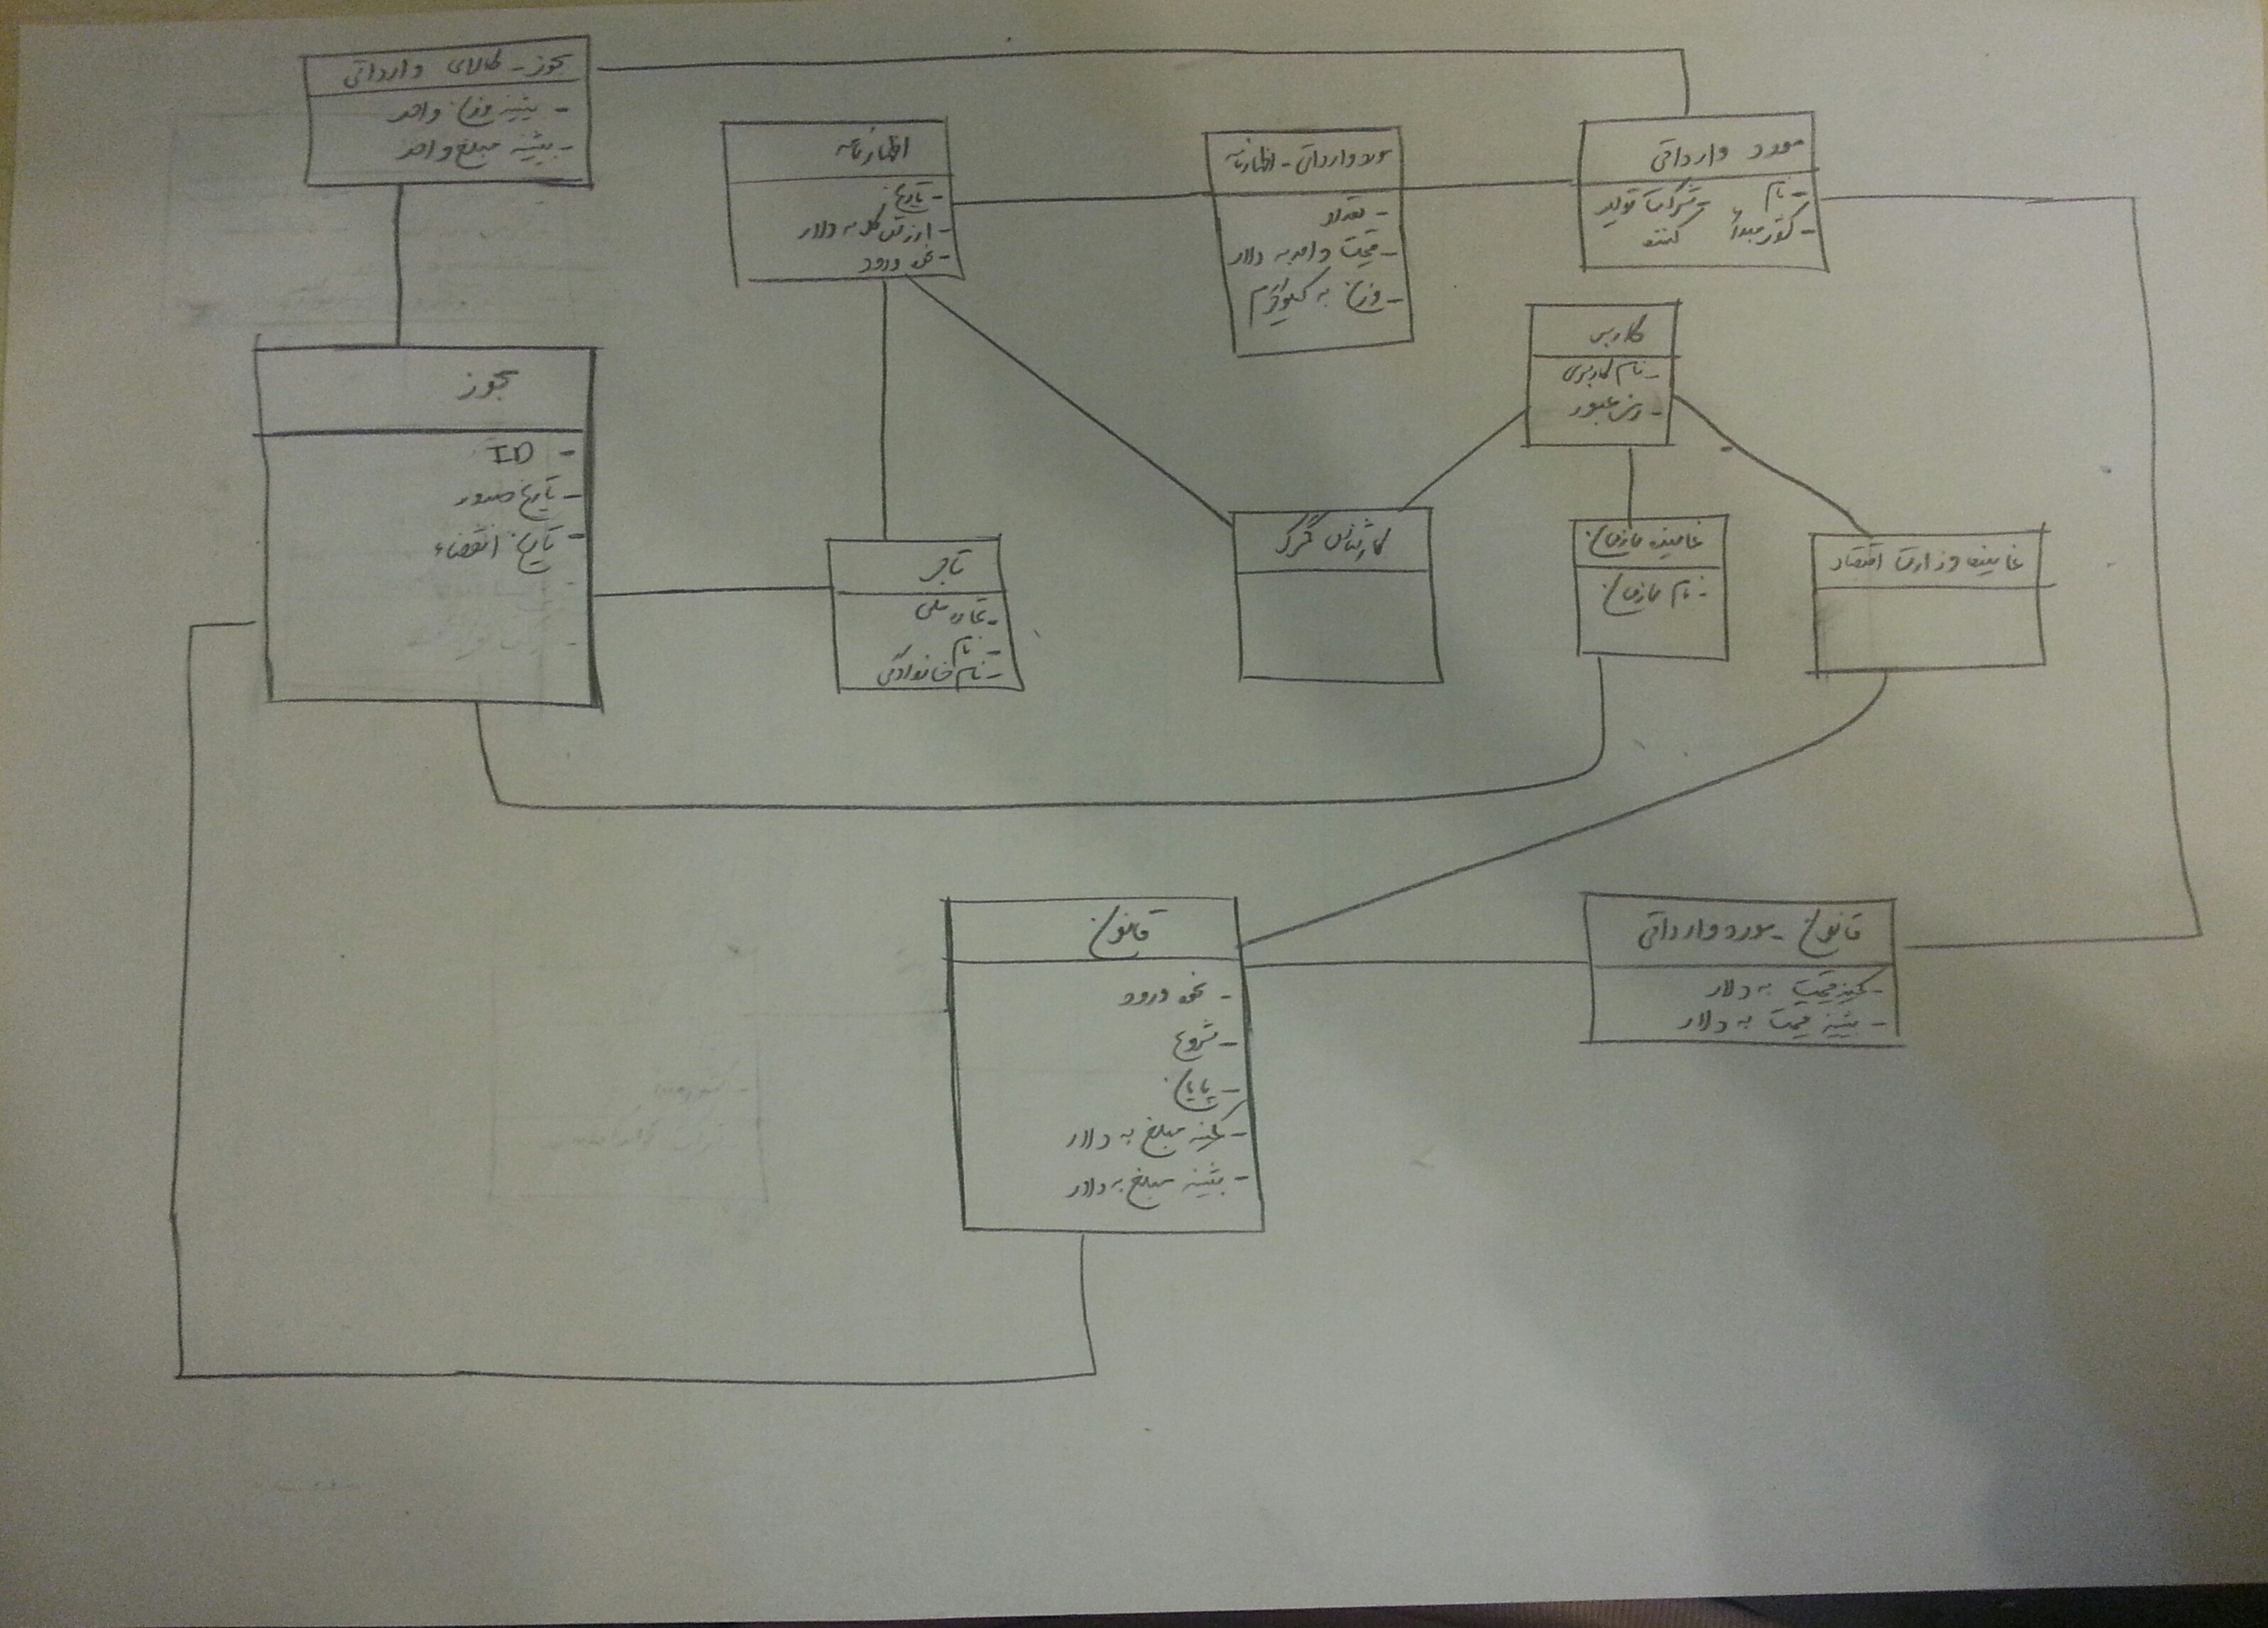 مجوز - کالای وارداتی
- بیشینه وزن واحد
- بیشینه مبلغ واحد
اظهارنامه
- تاریخ
- ارزش کل به دلار
- نحوه ورود
مورد وارداتی - اظهارنامه
- تعداد
- قیمت واحد به دلار
- وزن به کیلوگرم
مورد وارداتی
- نام
- شرکت تولید کننده
- کشور مبدأ
کاربر
- نام کاربری
- رمز عبور
مجوز
- ID
- تاریخ صدور
- تاریخ انقضاء
تاجر
- شماره ملی
- نام
- نام خانوادگی
کارشناس گمرک
نماینده سازمان
- نام سازمان
نماینده وزارت اقتصاد
قانون
- نحوه ورود
- شروع
- پایان
- کمینه مبلغ به دلار
- بیشینه مبلغ به دلار
قانون - مورد وارداتی
- کمینه قیمت به دلار
- بیشینه قیمت به دلار